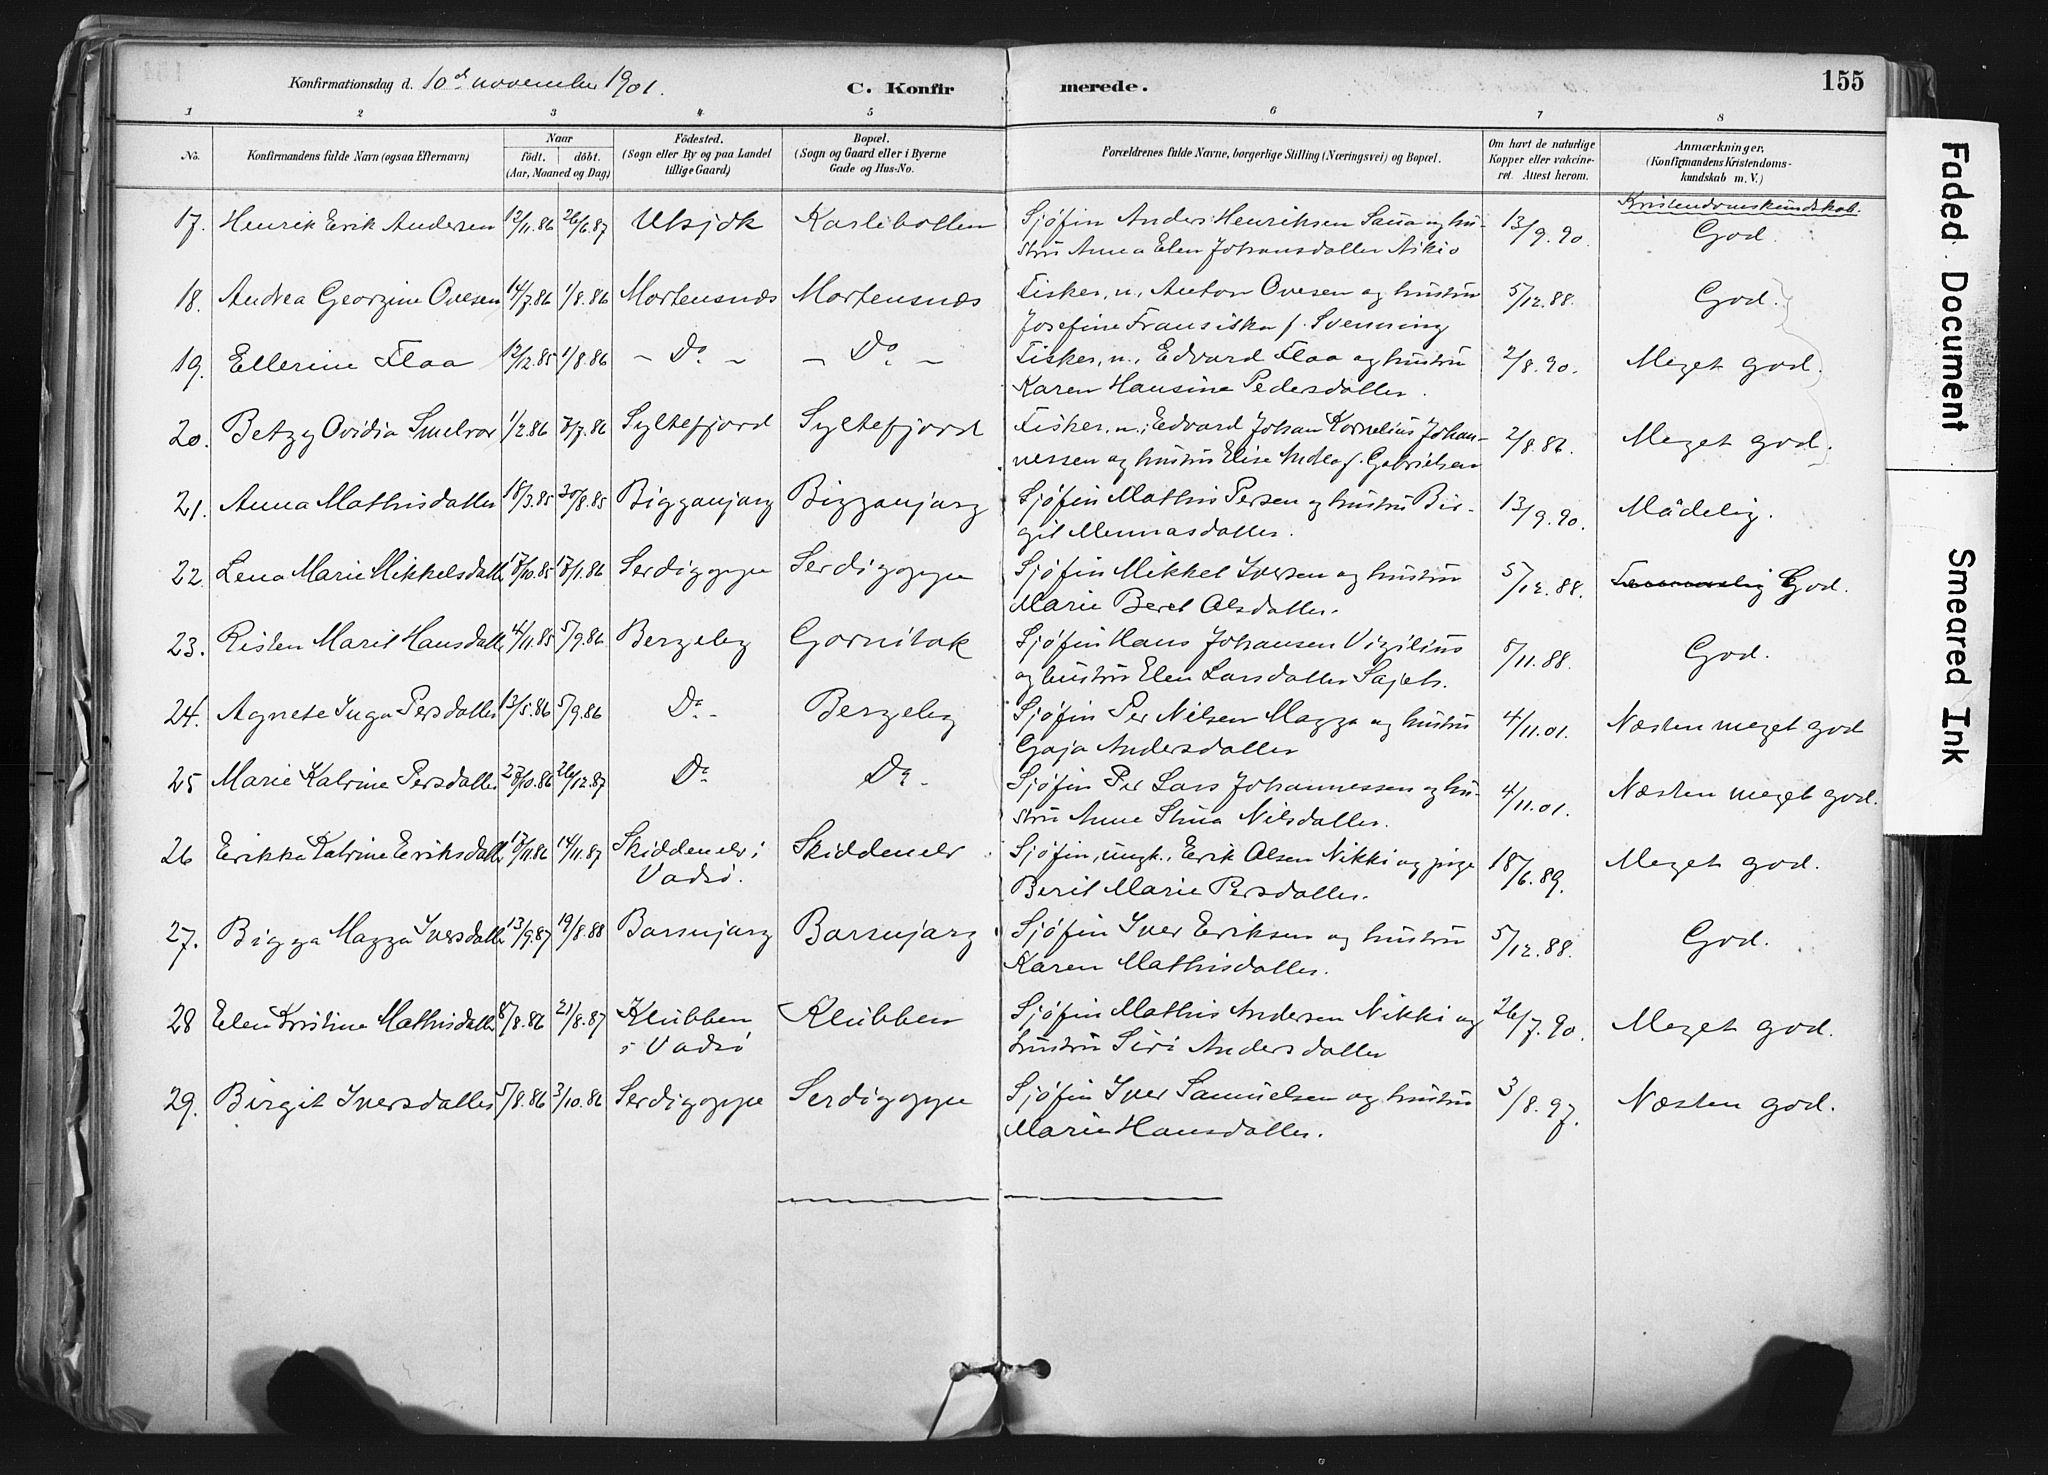 155
Konfirmationsdag d. 10de november 1901.
C. Konfirmerede.
1 2 3 4 5 6 7 8
No. Konfirmandens fulde Navn (ogsaa Efternavn) Naar født. døbt. (Aar, Maaned og Dag) Fødested. (Sogn eller By og paa Landet tillige Gaard) Bopæl. (Sogn og Gaard eller i Byerne Gade og Hus-No. Forældrenes fulde Navne, borgerlige Stilling (Næringsvei) og Bopæl. Om havt de naturlige Kopper eller vakcineret. Attest herom. Anmærkninger, (Konfirmandens Kristendomskundskab m. V.)
Kristendomskundskab.
17. Henrik Erik Andersen 12/11.86 26/6.87 Utsjok Karlebotten Sjøfin Anders Henriksen Saua og hu- 13/9.90. God.
stru Anna Elen Johansdatter Aikio
18. Andrea Georgine Ovesen 14/7.86 1/8.86 Mortensnæs Mortensnæs Fisker, n., Anton Ovesen og hustru 5/12.88. God.
Josefine Fransiska f. Svenning
19. Ellerine Flaa 12/12.85 1/8.86 – Do – – Do – Fisker, n., Edvard Flaa og hustru 2/8.90. Meget god.
Karen Hansine Pedersdatter.
20. Betzy Ovidia Smelror 1/2.86 8/7.86 Syltefjord Syltefjord Fisker, n., Edvard Johan Kornelius Johan- 2/8.86. Meget god.
nessen og hustru Elise Andrea f. Gabrielsen
21. Anna Mathisdatter 18/3.85 30/8.85 Bigganjarg Bigganjarg Sjøfin Mathis Persen og hustru Bir- 13/9.90. Mådelig.
git Mennasdatter.
22. Lena Marie Mikkelsdatter 18/10.85 18/1.86 Serdigoppe Serdigoppe Sjøfin Mikkel Iversen og hustru 5/12.88. God.
Marie Beret Olsdatter.
23. Risten Marit Hansdatter 4/11.85 5/9.86 Bergeby Gornitak Sjøfin Hans Johansen Vigilius 8/11.88. God.
og hustru Elen Larsdatter Sajets.
24. Agnete Inga Persdatter 13/5.86 5/9.86 Do. Bergeby Sjøfin Per Nilsen Magga og hustru 4/11.01. Næsten meget god
Gaja Andersdatter
25 Marie Katrine Persdatter 28/10.86 26/12.87 Do Do. Sjøfin Per Lars Johannessen og hu- 4/11.01. Næsten meget god.
stru Anne Stina Nilsdatter.
26 Erikka Katrine Eriksdatter 18/11.86 14/11.87 Skiddenelv i Skiddenelv Sjøfin, ungk., Erik Olsen Nikki og pige 18/6.89. Meget god.
Vadsø. Berit Marie Persdatter.
27. Bigga Magga Iversdatter 13/9.87 19/8.88 Barsnjarg Barsnjarg Sjøfin Iver Eriksen og hustru 5/12.88. God.
Karen Mathisdatter.
28 Elen Kristine Mathisdatter 8/8.86 21/8.87 Klubben Klubben Sjøfin Mathis Andersen Nikki og 26/7.90. Meget god.
i Vadsø hustru Siri Andersdatter
29. Birgit Iversdatter 5/8.86 3/10.86 Serdigoppe Serdigoppe Sjøfin Iver Samuelsen og hustru 3/8.97. Næsten god.
Marie Hansdatter.
Faded Document
Smeared Ink